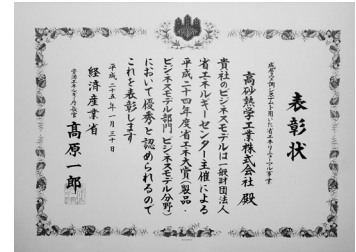 表彰状
高砂熱学工業株式会社 殿
貴社のビジネスモデルは一般財団法人
省エネルギーセンター主催による
平成二十四年度省エネ大賞(製品・
ビジネスモデル部門 ビジネスモデル分野)
において優秀と認められるので
これを表彰します
平成二十五年一月三十日
経済産業省
資源エネルギー庁長官 高原一郎